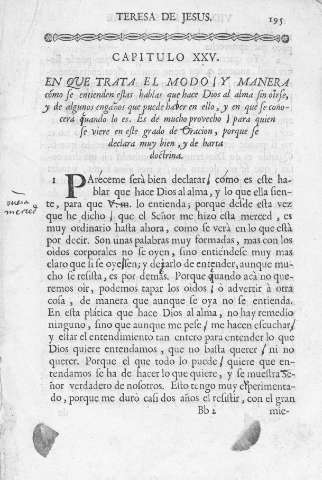 TERESA DE JESUS.
195
CAPITULO XXV.
EN QUE TRATA EL MODO, Y MANERA
cómo se entienden estas hablas que hace Dios al alma sin oirse,
y de algunos engaños que puede haber en ello, y en qué se cono-
cerá quando lo es. Es de mucho provecho, para quien
se viere en este grado de Oracion, porque se
declara muy bien, y de harta
doctrina.
1 Paréceme será bien declarar, cómo es este ha-
blar que hace Dios al alma, y lo que ella sien-
te, para que V.m. lo entienda; porque desde esta vez
que he dicho, que el Señor me hizo esta merced, es
muy ordinario hasta ahora, como se verá en lo que está
por decir. Son unas palabras muy formadas, mas con los
oidos corporales no se oyen, sino entiéndese muy mas
claro que si se oyessen; y dejarlo de entender, aunque mu-
cho se resista, es por demás. Porque quando acá no que-
remos oir, podemos tapar los oidos, ó advertir á otra
cosa, de manera que aunque se oya no se entienda.
En esta plática que hace Dios al alma, no hay remedio
ninguno, sino que aunque me pese, me hacen escuchar,
y estar el entendimiento tan entero para entender lo que
Dios quiere entendamos, que no basta querer, ni no
querer. Porque el que todo lo puede, quiere que en-
tendamos se ha de hacer lo que quiere, y se muestra Se-
ñor verdadero de nosotros. Esto tengo muy experimenta-
do, porque me duró casi dos años el resistir, con el gran
Bb 2
mie-
merced